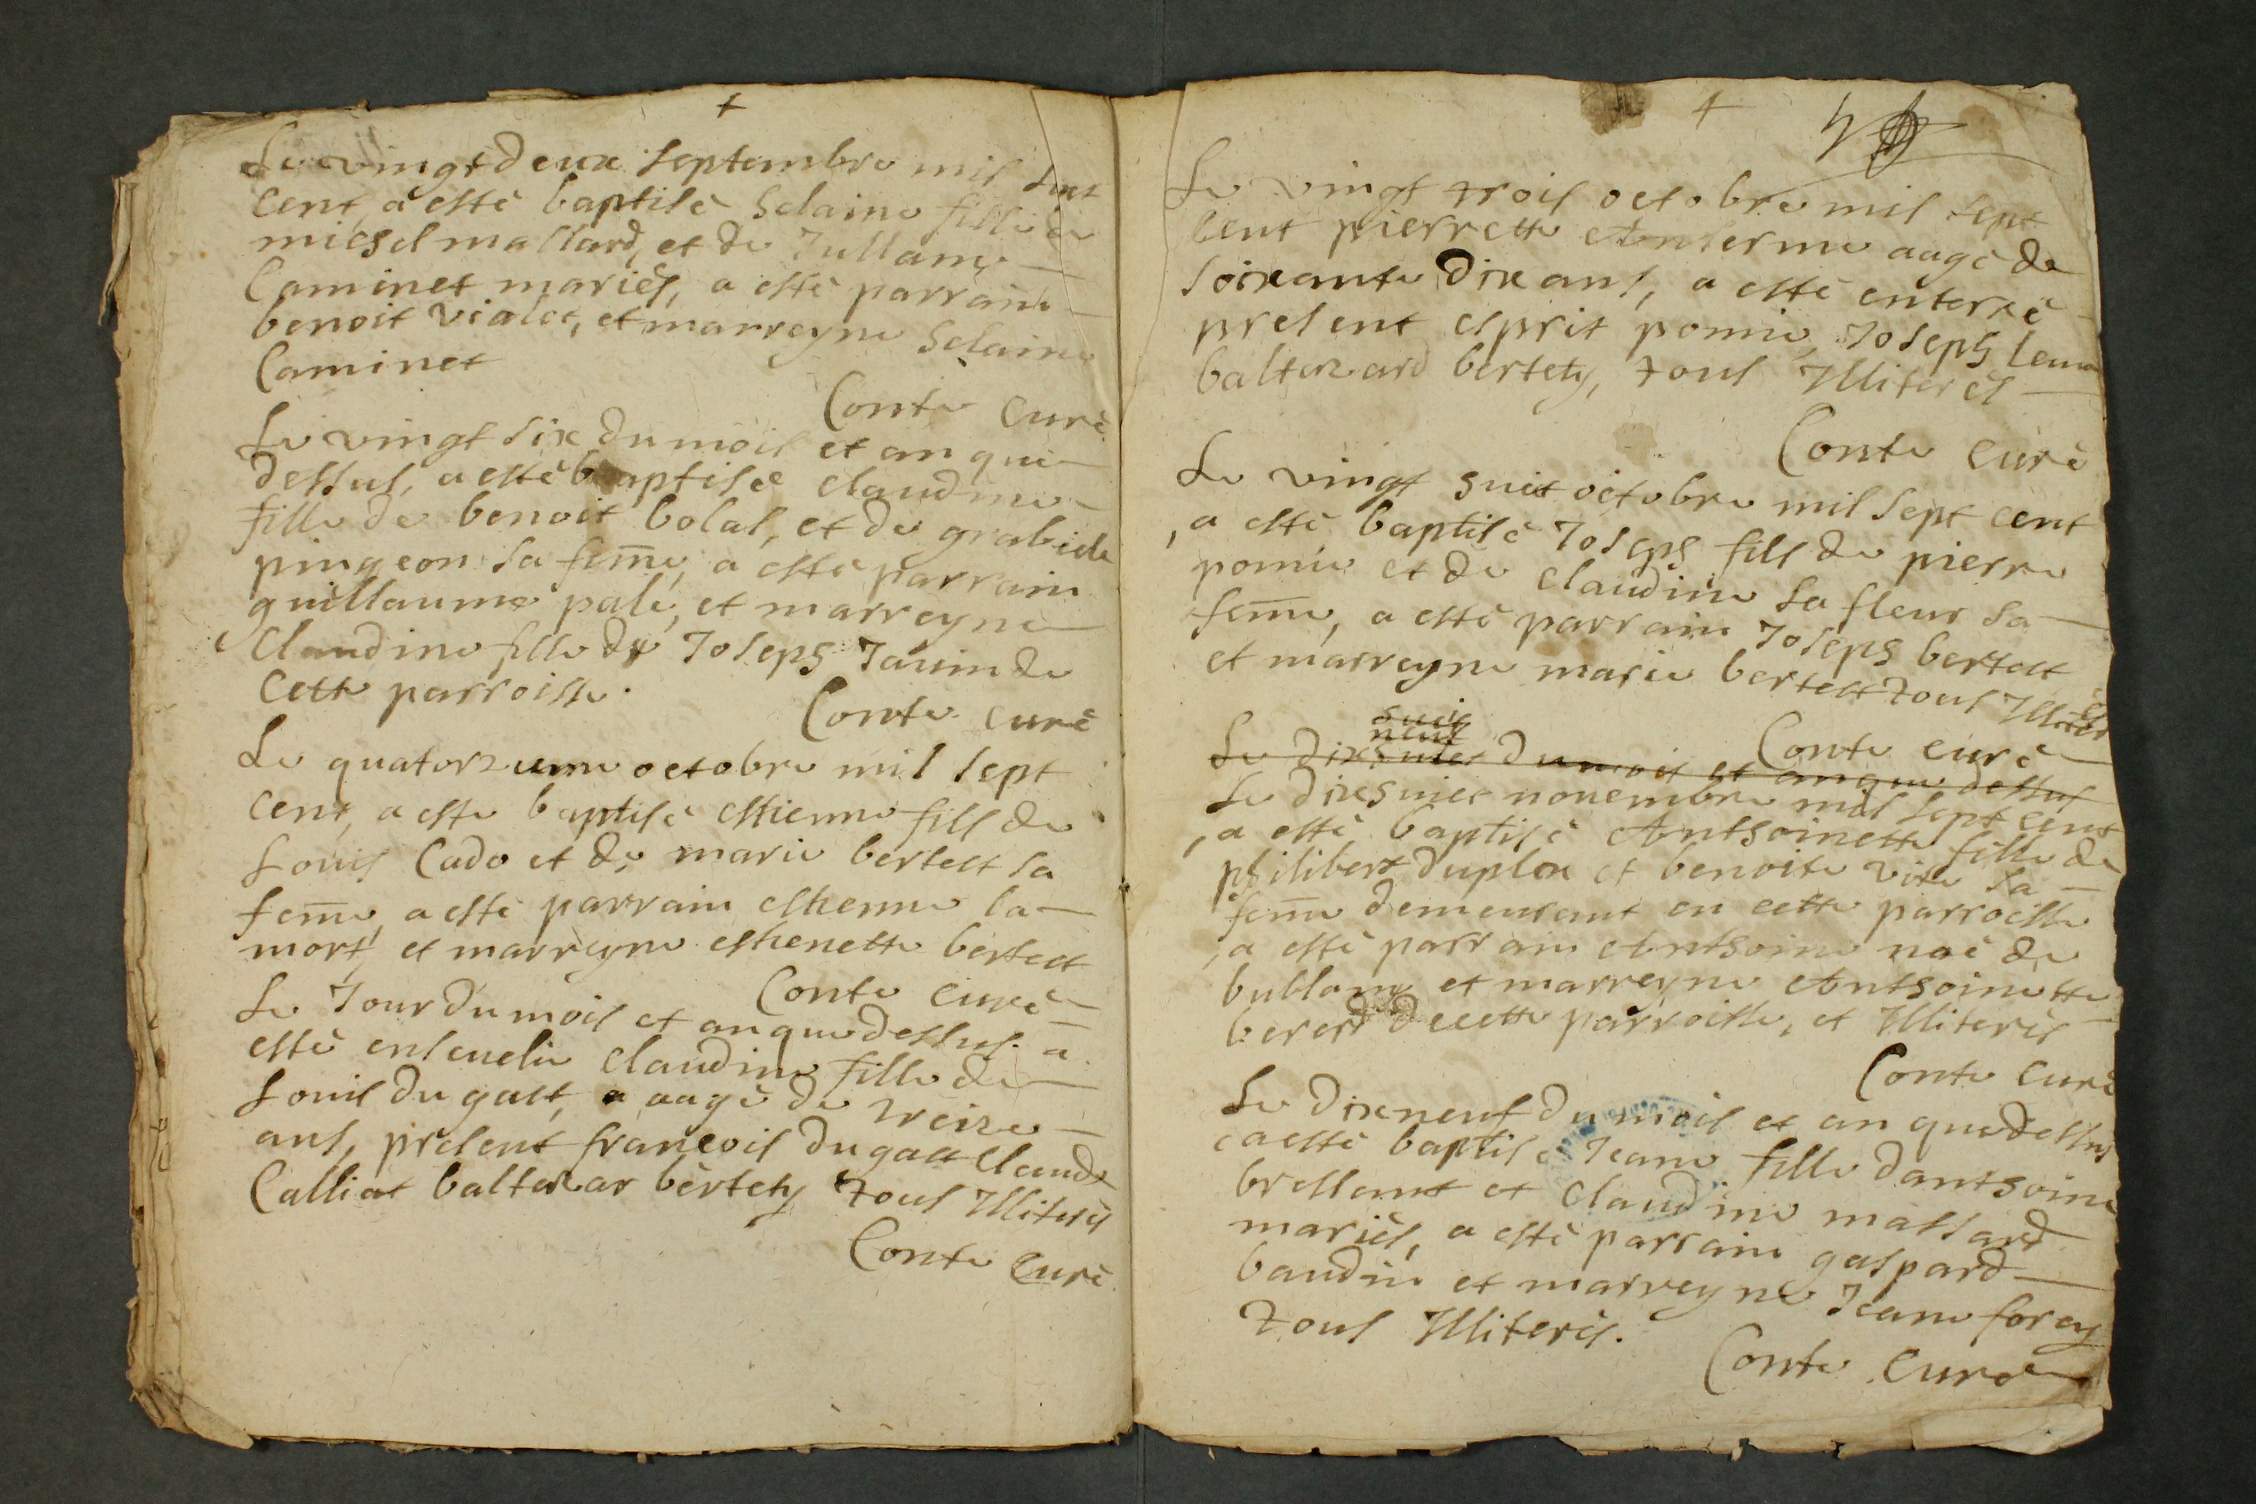 Le vingt deux septembre mil sept
cent, a esté baptisé helaine fille de
michel mallard, et de Jullanne
Caminet mariés, a esté parrain
benoit violet, et marreyne helaine
Caminet
Conte curé
Le vingt six du mois et an que
dessus, a esté baptisé claudine
fille de benoit bolas, et de grabiele
pingeon sa fem̄e, a esté parrain
guillaume palé, et marreyne
Claudine fille de Joseph Janin de
cette parroisse.
Conte curé
Le quatorzieme octobre mil sept
cent, a esté baptisé estienne fils de
Louis Cado et de marie bertest sa
fem̄e, a esté parrain estienne la
mort, et marreyne estienette bertest
Conte curé
Le Jour du mois et an que dessus a
esté enseuelie claudine fille de
Louis dugast, aagé de treize
ans, present francois dugast claude
Calliat baltazar bertety tous Illiterés
Conte Curé
Le vingt trois octobre mil sept
cent pierrette aagé de
soixante dix ans, a esté enterré
present esprit pomie, Joseph
baltazard bertety, tous Illiterés
Conte curé
Le vingt huit octobre mil sept cent
, a esté baptisé Joseph fils de pierre
pomie et de claudine la fleur sa
fem̄e, a esté parrain Joseph bertest
et marreyne marie bertest tous Illiterés
Conte curé
huit
neuf
Le dixhuict du mois et an que dessus
Le dixhuict nouembre mil sept cent
, a esté baptisé Anthoinette fille de
philibert duplex et benoite vite sa
fem̄e demeurant en cette parroisse
, a esté parrain Anthoine noé de
bullany et marreyne Anthoinette
bererd de cette parroisse, et Illiterés
Conte Curé
Le dixneuf du mois et an que dessus
a esté baptisé Jeanne fille danthoine
bressant et Claudine massard
mariés, a esté parrain gaspard
baudin et marreyne Jeanne forey
tous Illiterés.
Conte Curé